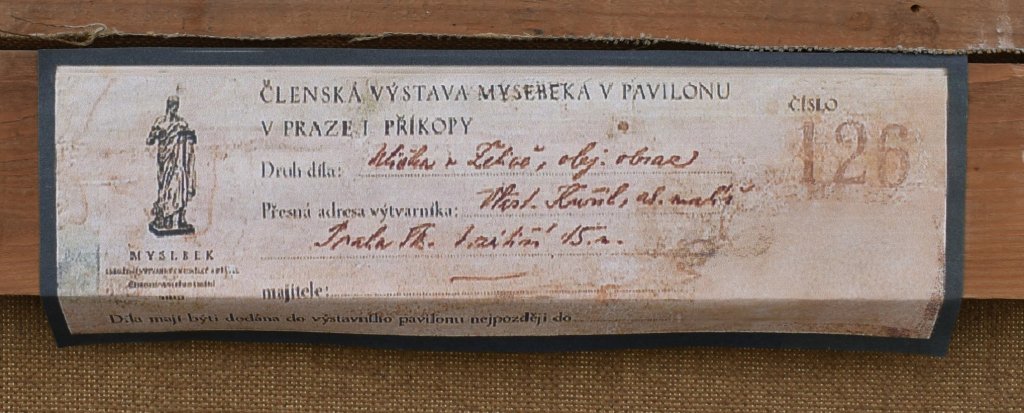 ČLENSKÁ VÝSTAVA MYSLBEKA V PAVILONU
V PRAZE I PŘÍKOPY
ČÍSLO
126
Druh díla: Ulička v Telči, olej. obraz
Přesná adresa výtvarníka: ak. malíř
Praha 15
MYSLBEK
majitele:
Díla mají býti dodána do výstavního pavilonu nejpozději do